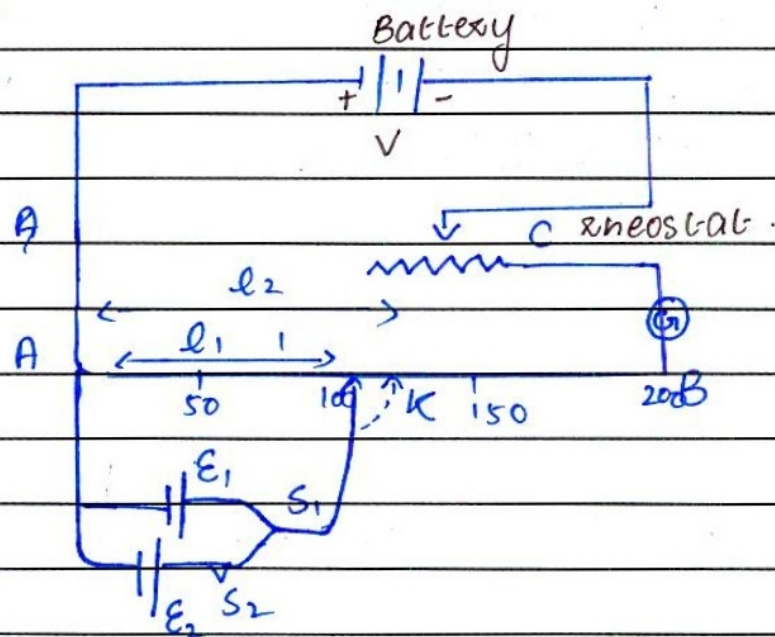 Battery
+ -
V
A
C rheostat.
l2
A
l1 1
G
50 100 K 150 200B
ε1
S1
ε2 S2